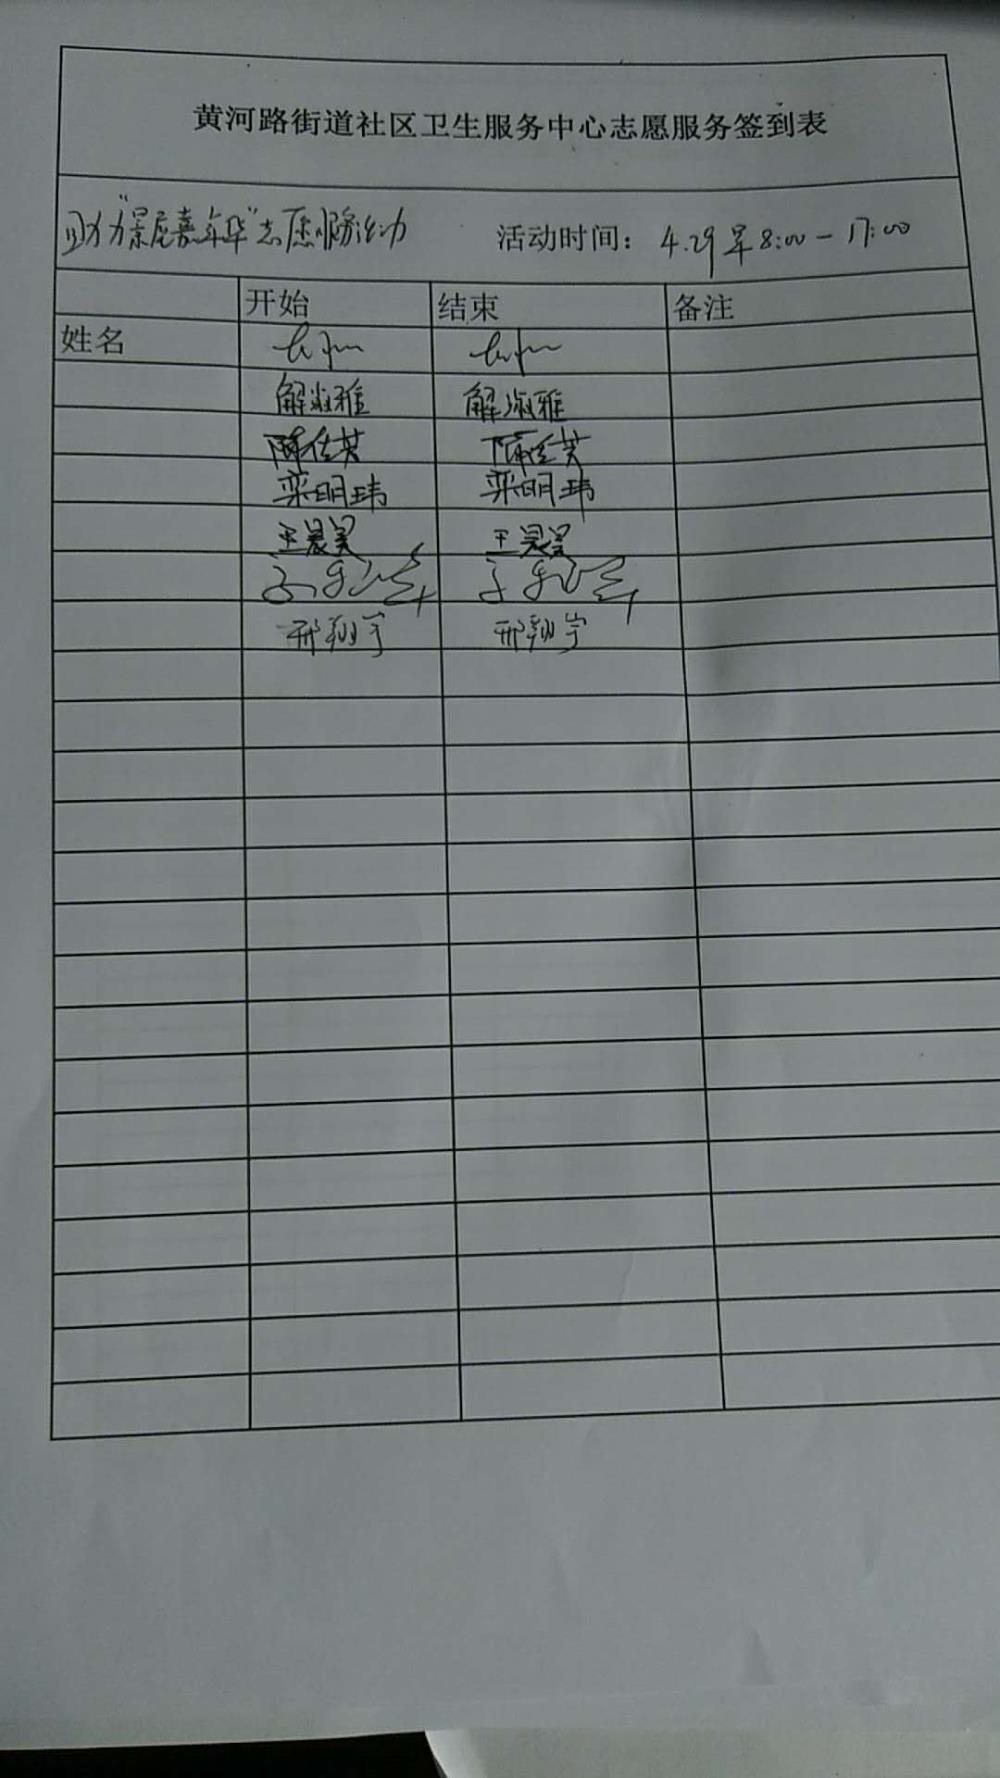 黄河路街道社区卫生服务中心志愿服务签到表
助力"景庭嘉年华"志愿服务活动 活动时间：4.29早8:00-17:00
开始 结束 备注
姓名
解淑雅 解淑雅
陈佳英 陈佳英
栾明玮 栾明玮
王晨昊 王晨昊
邢翔宇 邢翔宇